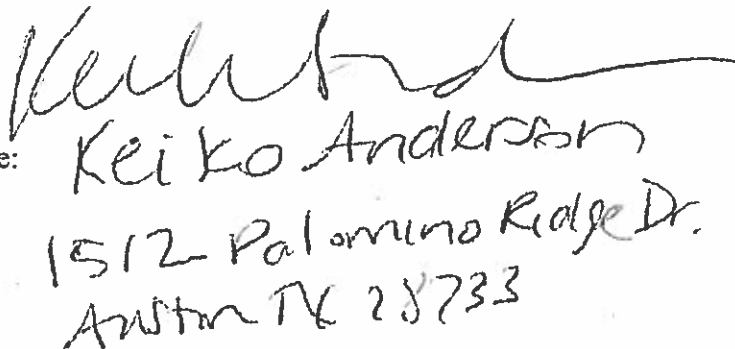 e:
Keiko Anderson
1512 Palomino Ridge Dr.
Austin TX 78733